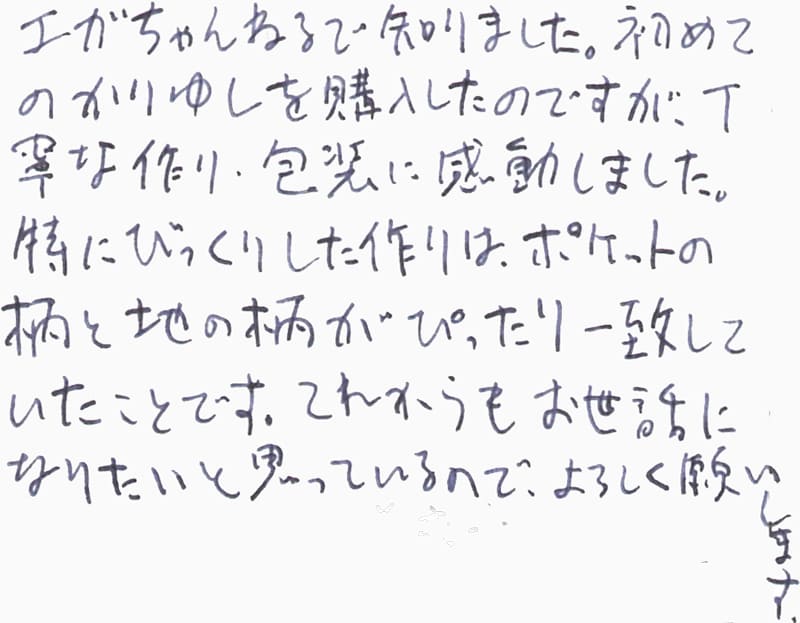 エガちゃんねるで知りました。初めて
のかりゆしを購入したのですが、丁
寧な作り、包装に感動しました。
特にびっくりした作りは、ポケットの
柄と地の柄がぴったり一致して
いたことです。これからもお世話に
なりたいと思っているので、よろしく願い
します。